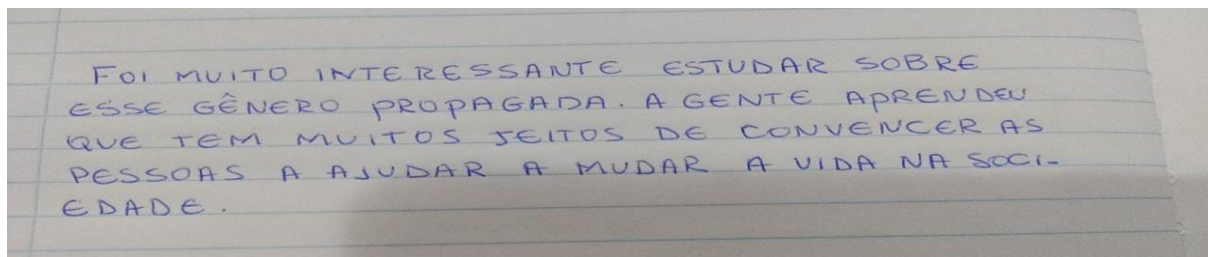 FOI MUITO INTERESSANTE ESTUDAR SOBRE
ESSE GÊNERO PROPAGADA. A GENTE APRENDEU
QUE TEM MUITOS JEITOS DE CONVENCER AS
PESSOAS A AJUDAR A MUDAR A VIDA NA SOCI-
EDADE.